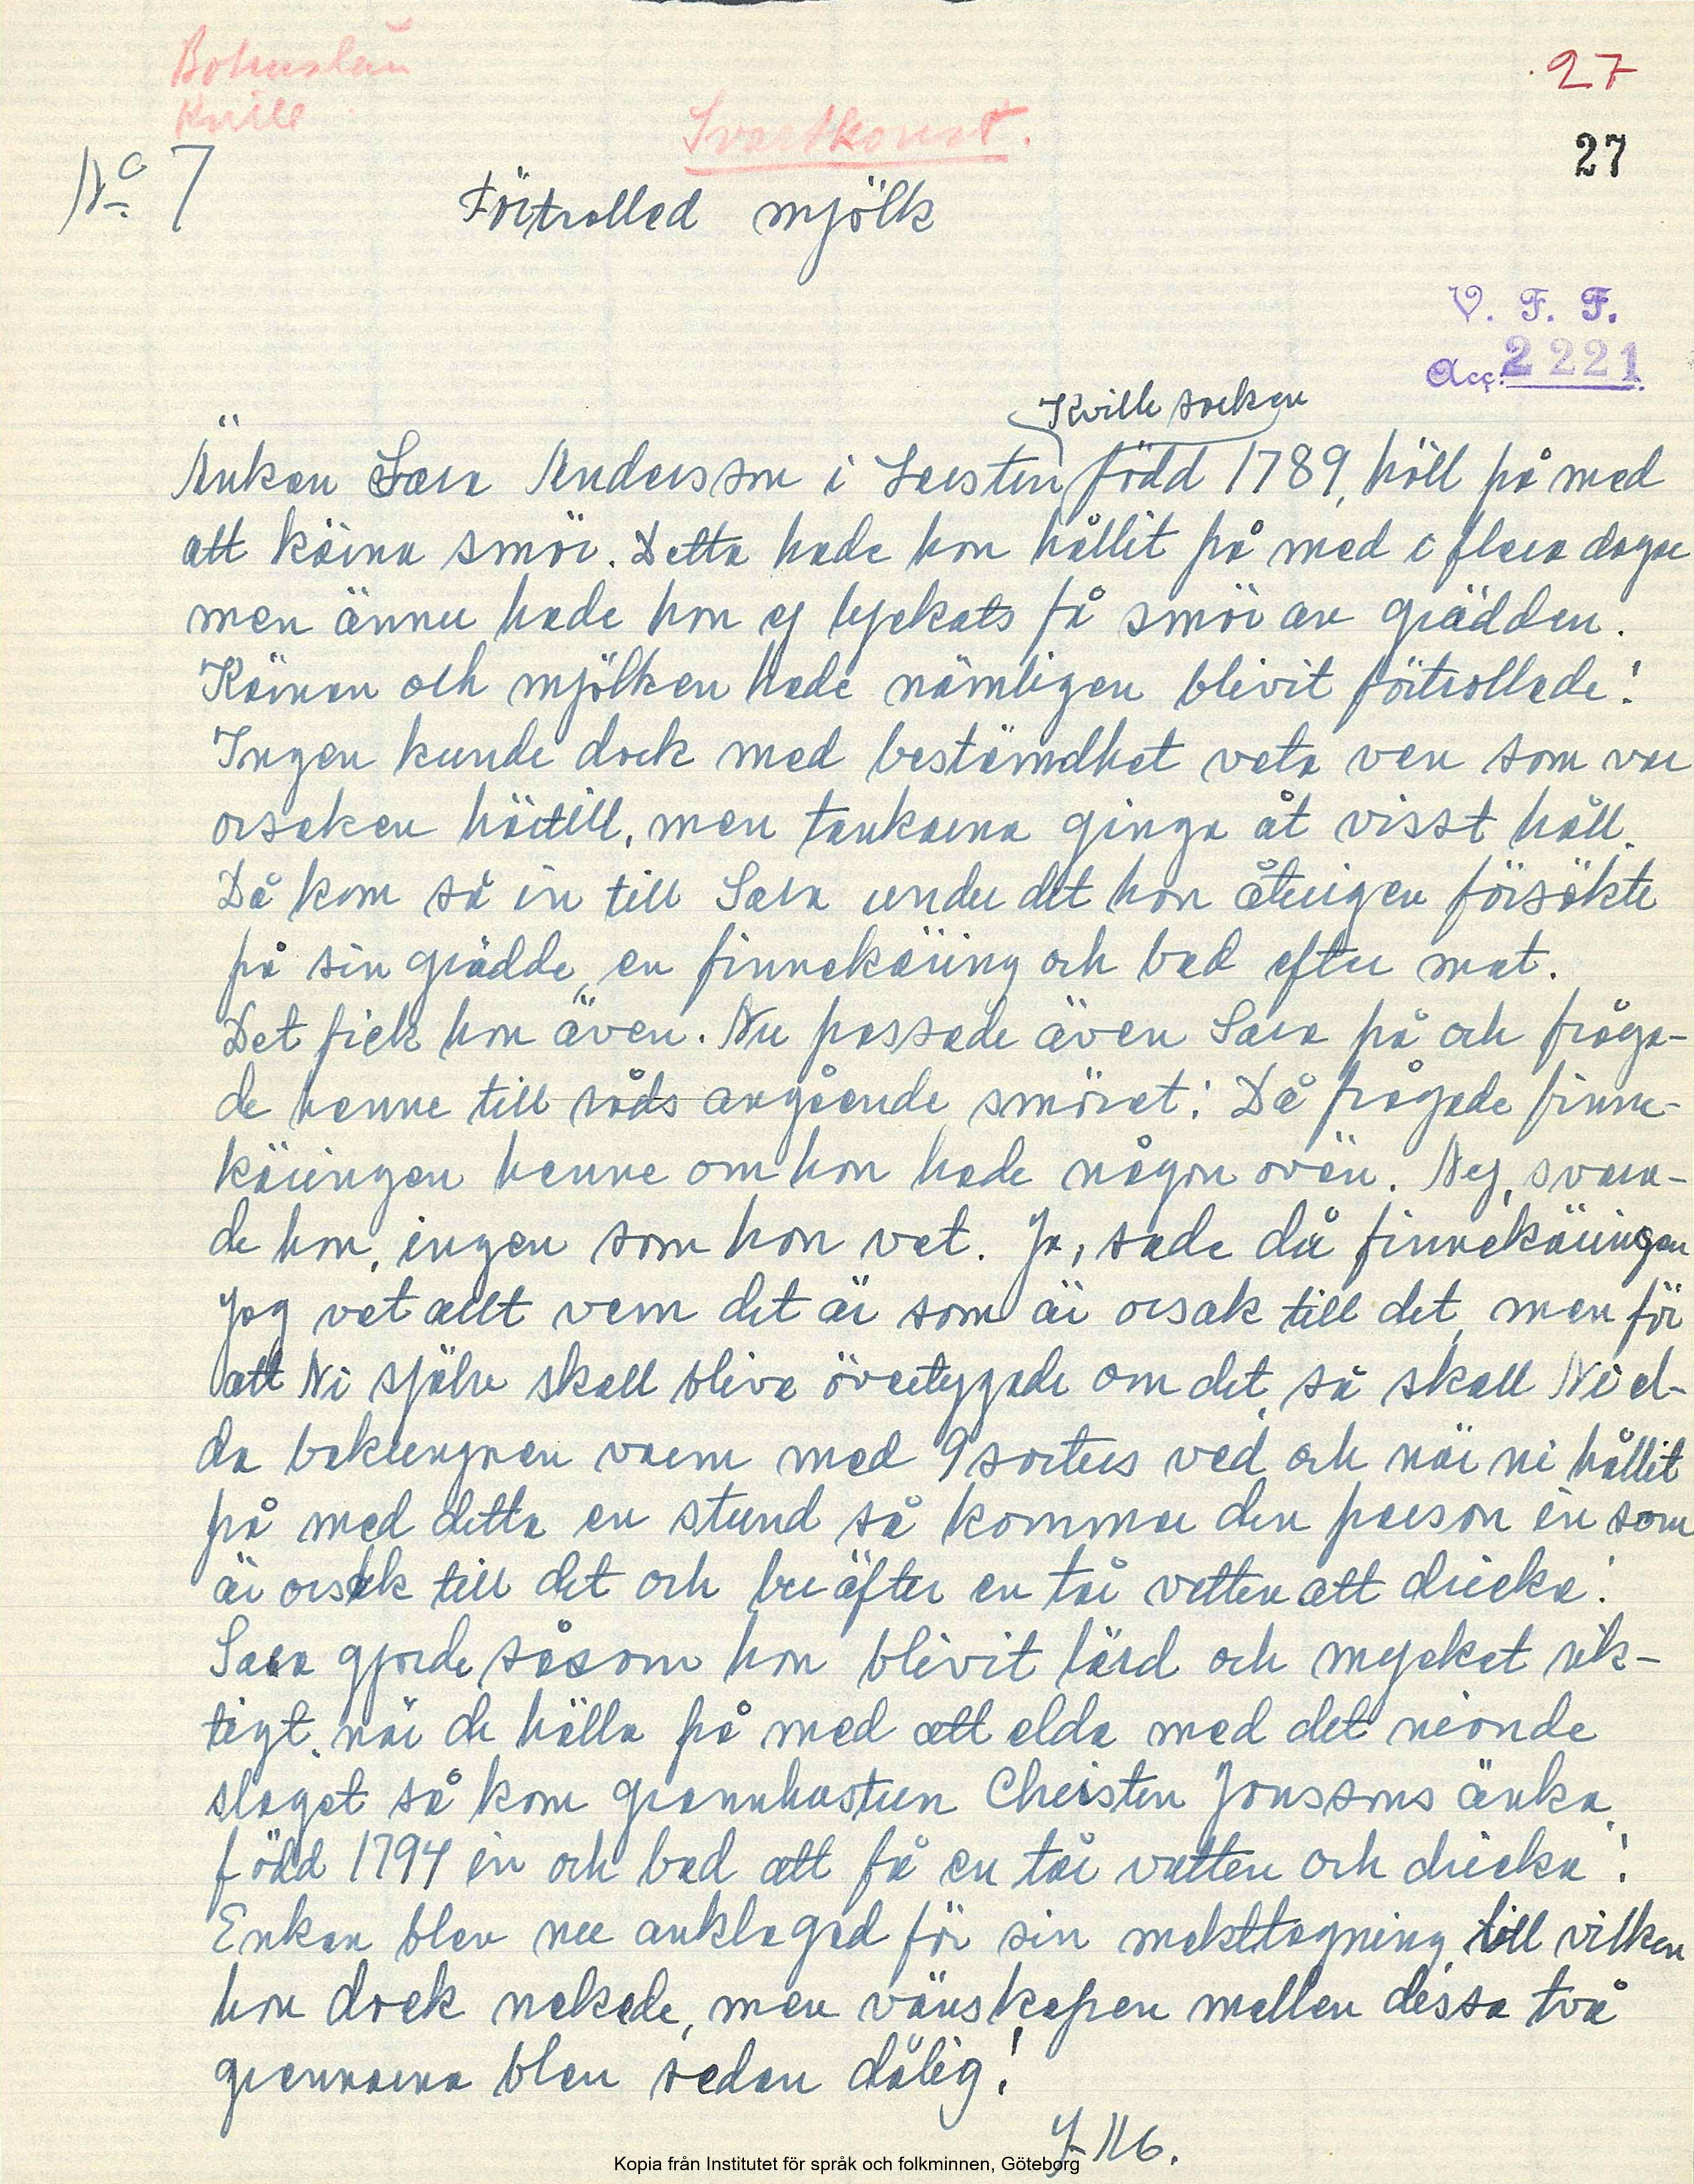 Bohuslän
Kville
27
27
Svartkonst.
No 7
Förtrollad mjölk
V. F. F.
Acc: 2221
Kville socken
Änkan Sara Andersson i Larsten född 1789, höll på med
att kärna smör. Detta hade hon hållit på med i flera dagar
men ännu hade hon ej lyckats få smör av grädden.
Kärnan och mjölken hade nämligen blivit förtrollade!
Ingen kunde dock med bestämdhet veta vem som var
orsaken härtill, men tankarna gingo åt visst håll.
Då kom så in till Sara under det hon återigen försökte
på sin grädde, en finnekäring och bad efter mat.
Det fick hon även. Nu passade även Sara på och fråga-
de henne till råds angående smöret: Då frågade finne-
käringen henne om hon hade någon ovän. Nej, svara-
de hon, ingen som hon vet. Ja, sade då finnekäringen
Jag vet allt vem det är som är orsak till det, men för
att Ni själv skall bliva övertygade om det, så skall Ni el-
da bakungnen varm med 9 sorters ved och när ni hållit
på med detta en stund så kommer den person in som
är orsak till det och ber äfter en tår vatten att dricka!
Sara gjorde såsom hon blivit lärd och mycket rik-
tigt, när de hålla på med att elda med det nionde
slaget så kom grannhustrun Christen Jonssons änka,
född 1794 in och bad att få en tår vatten och dricka!
Enkan blev nu anklagad för sin makttagning, till vilken
hon dock nekade, men vänskapen mellan dessa två
grannarna blev sedan dålig!
Kopia från Institutet för språk och folkminnen, Göteborg